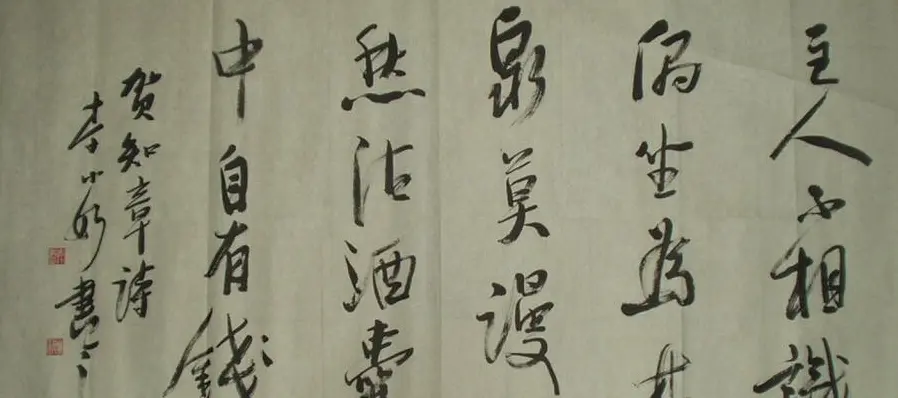 主人不相識
偶坐為林
泉莫謾
愁沽酒囊
中自有錢
賀知章詩
李小如書